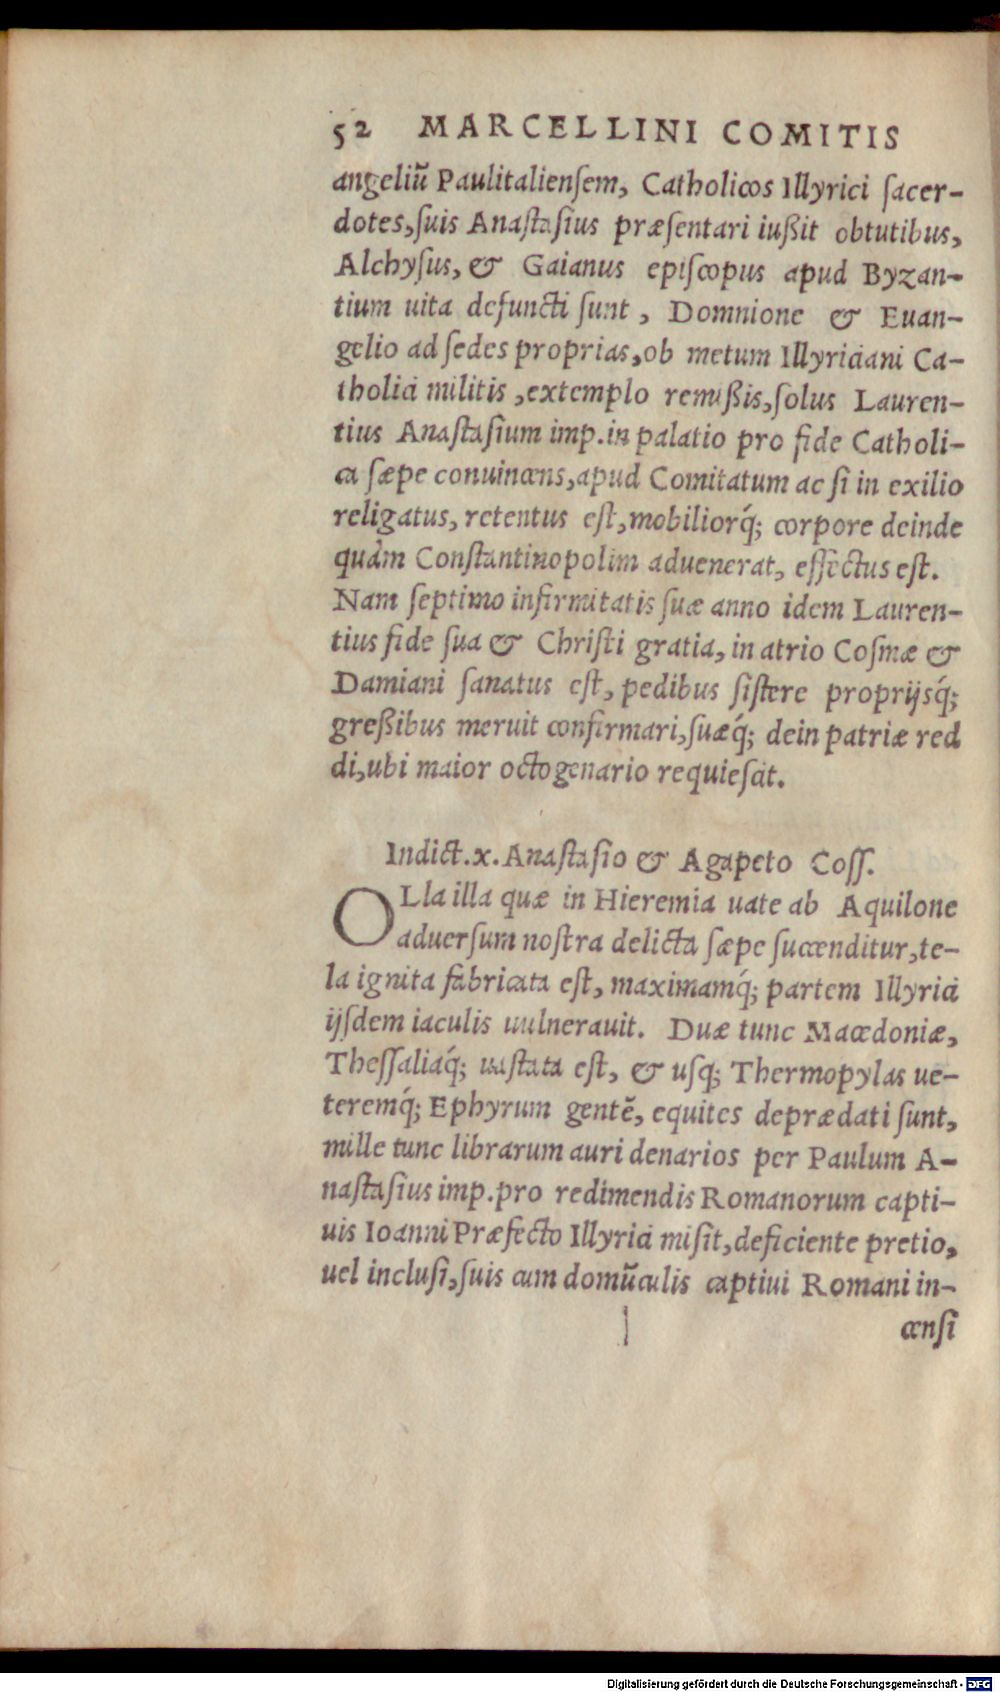 52 MARCELLINI COMITIS
angeliũ Paulitalienſem, Catholicos Illyrici ſacer-
dotes, ſuis Anaſtaſius præſentari iußit obtutibus,
Alchyſus, & Gaianus epiſcopus apud Byzan-
tium uita defuncti ſunt, Domnione & Euan-
gelio ad ſedes proprias, ob metum Illyriciani Ca-
tholici militis, extemplo remißis, ſolus Lauren-
tius Anaſtaſium imp. in palatio pro fide Catholi-
ca ſæpe conuincens, apud Comitatum ac ſi in exilio
religatus, retentus eſt, mobiliorq́; corpore deinde
quàm Conſtantinopolim aduenerat, effectus eſt.
Nam ſeptimo infirmitatis ſuæ anno idem Lauren-
tius fide ſua & Chriſti gratia, in atrio Coſmæ &
Damiani ſanatus eſt, pedibus ſiſtere proprijsq́;
greßibus meruit confirmari, ſuæq́; dein patriæ red
di, ubi maior octogenario requieſcit.
Indict. x. Anaſtaſio & Agapeto Coſſ.
OLla illa quæ in Hieremia uate ab Aquilone
aduerſum noſtra delicta ſæpe ſuccenditur, te-
la ignita fabricata eſt, maximamq́; partem Illyrici
ijſdem iaculis uulnerauit. Duæ tunc Macedoniæ,
Theſſaliaq́; uaſtata eſt, & uſq; Thermopylas ue-
teremq́; Ephyrum gentẽ, equites deprædati ſunt,
mille tunc librarum auri denarios per Paulum A-
naſtaſius imp. pro redimendis Romanorum capti-
uis Ioanni Præfecto Illyrici miſit, deficiente pretio,
uel incluſi, ſuis cum domũculis captiui Romani in-
cenſi
Digitalisierung gefördert durch die Deutsche Forschungsgemeinschaft - DFG